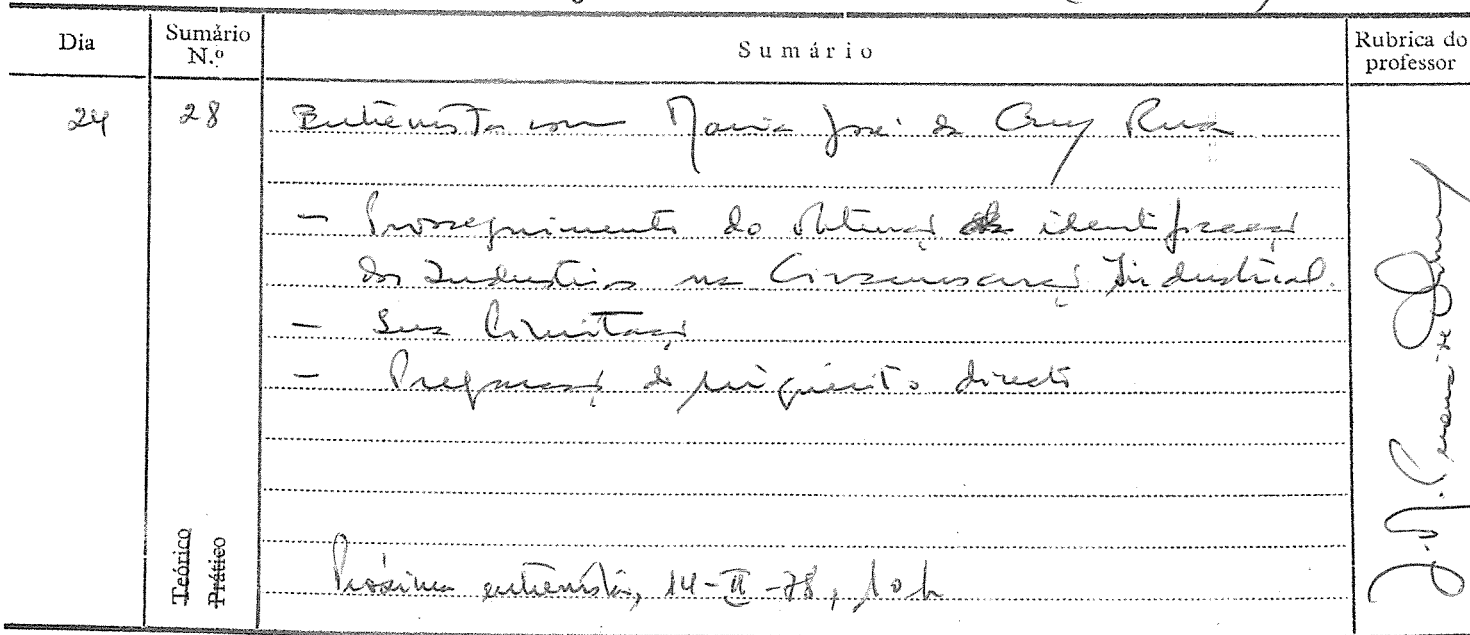 Dia
Sumário N.º
Sumário
Rubrica do professor
24
28
Entrevista com Maria José da Cruz
- Prosseguimento da obtenção identificação
das Industrias na Circunscrição Industrial.
- Sua limitação
- Preparação do inquérito directo
Teórico
Prático
Próxima entrevista, 14-II-78, 10h
J. M. Pereira de